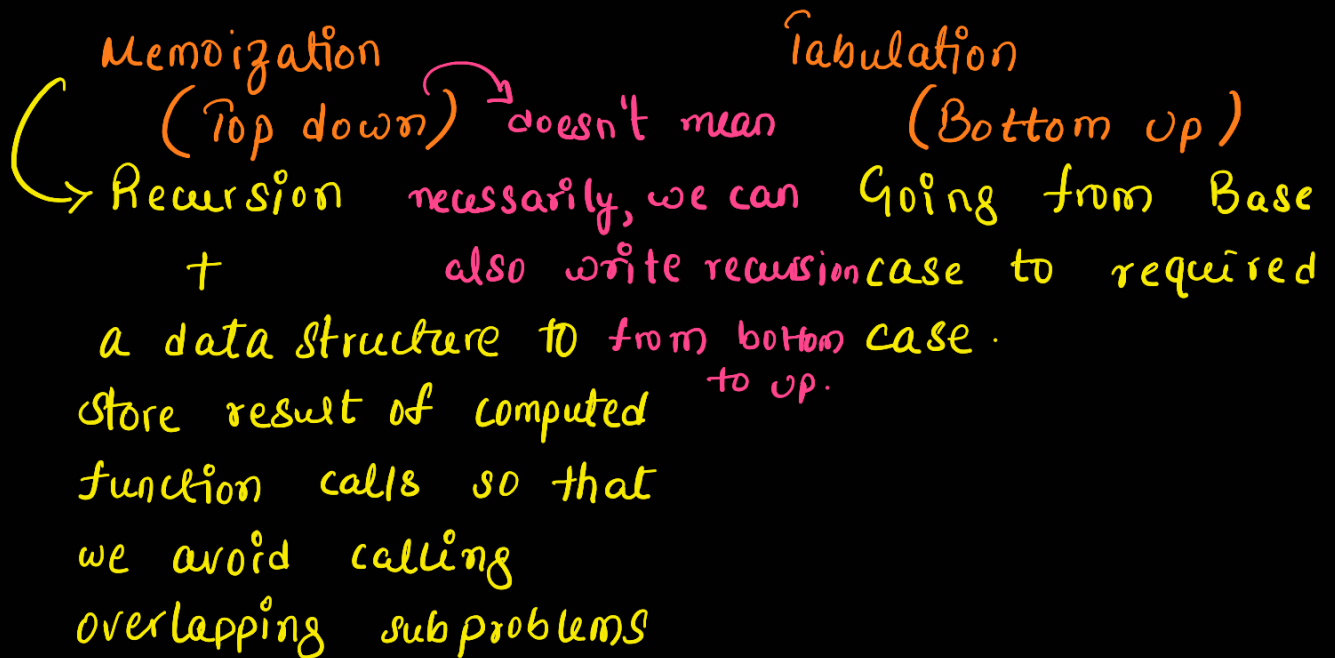 Memoization
(Top down)
Recursion
+
a data structure to
store result of computed
function calls so that
we avoid calling
overlapping subproblems
doesn't mean
necessarily, we can
also write recussion
from bottom
to up.
Tabulation
(Bottom up)
Going from Base
case to required
case.